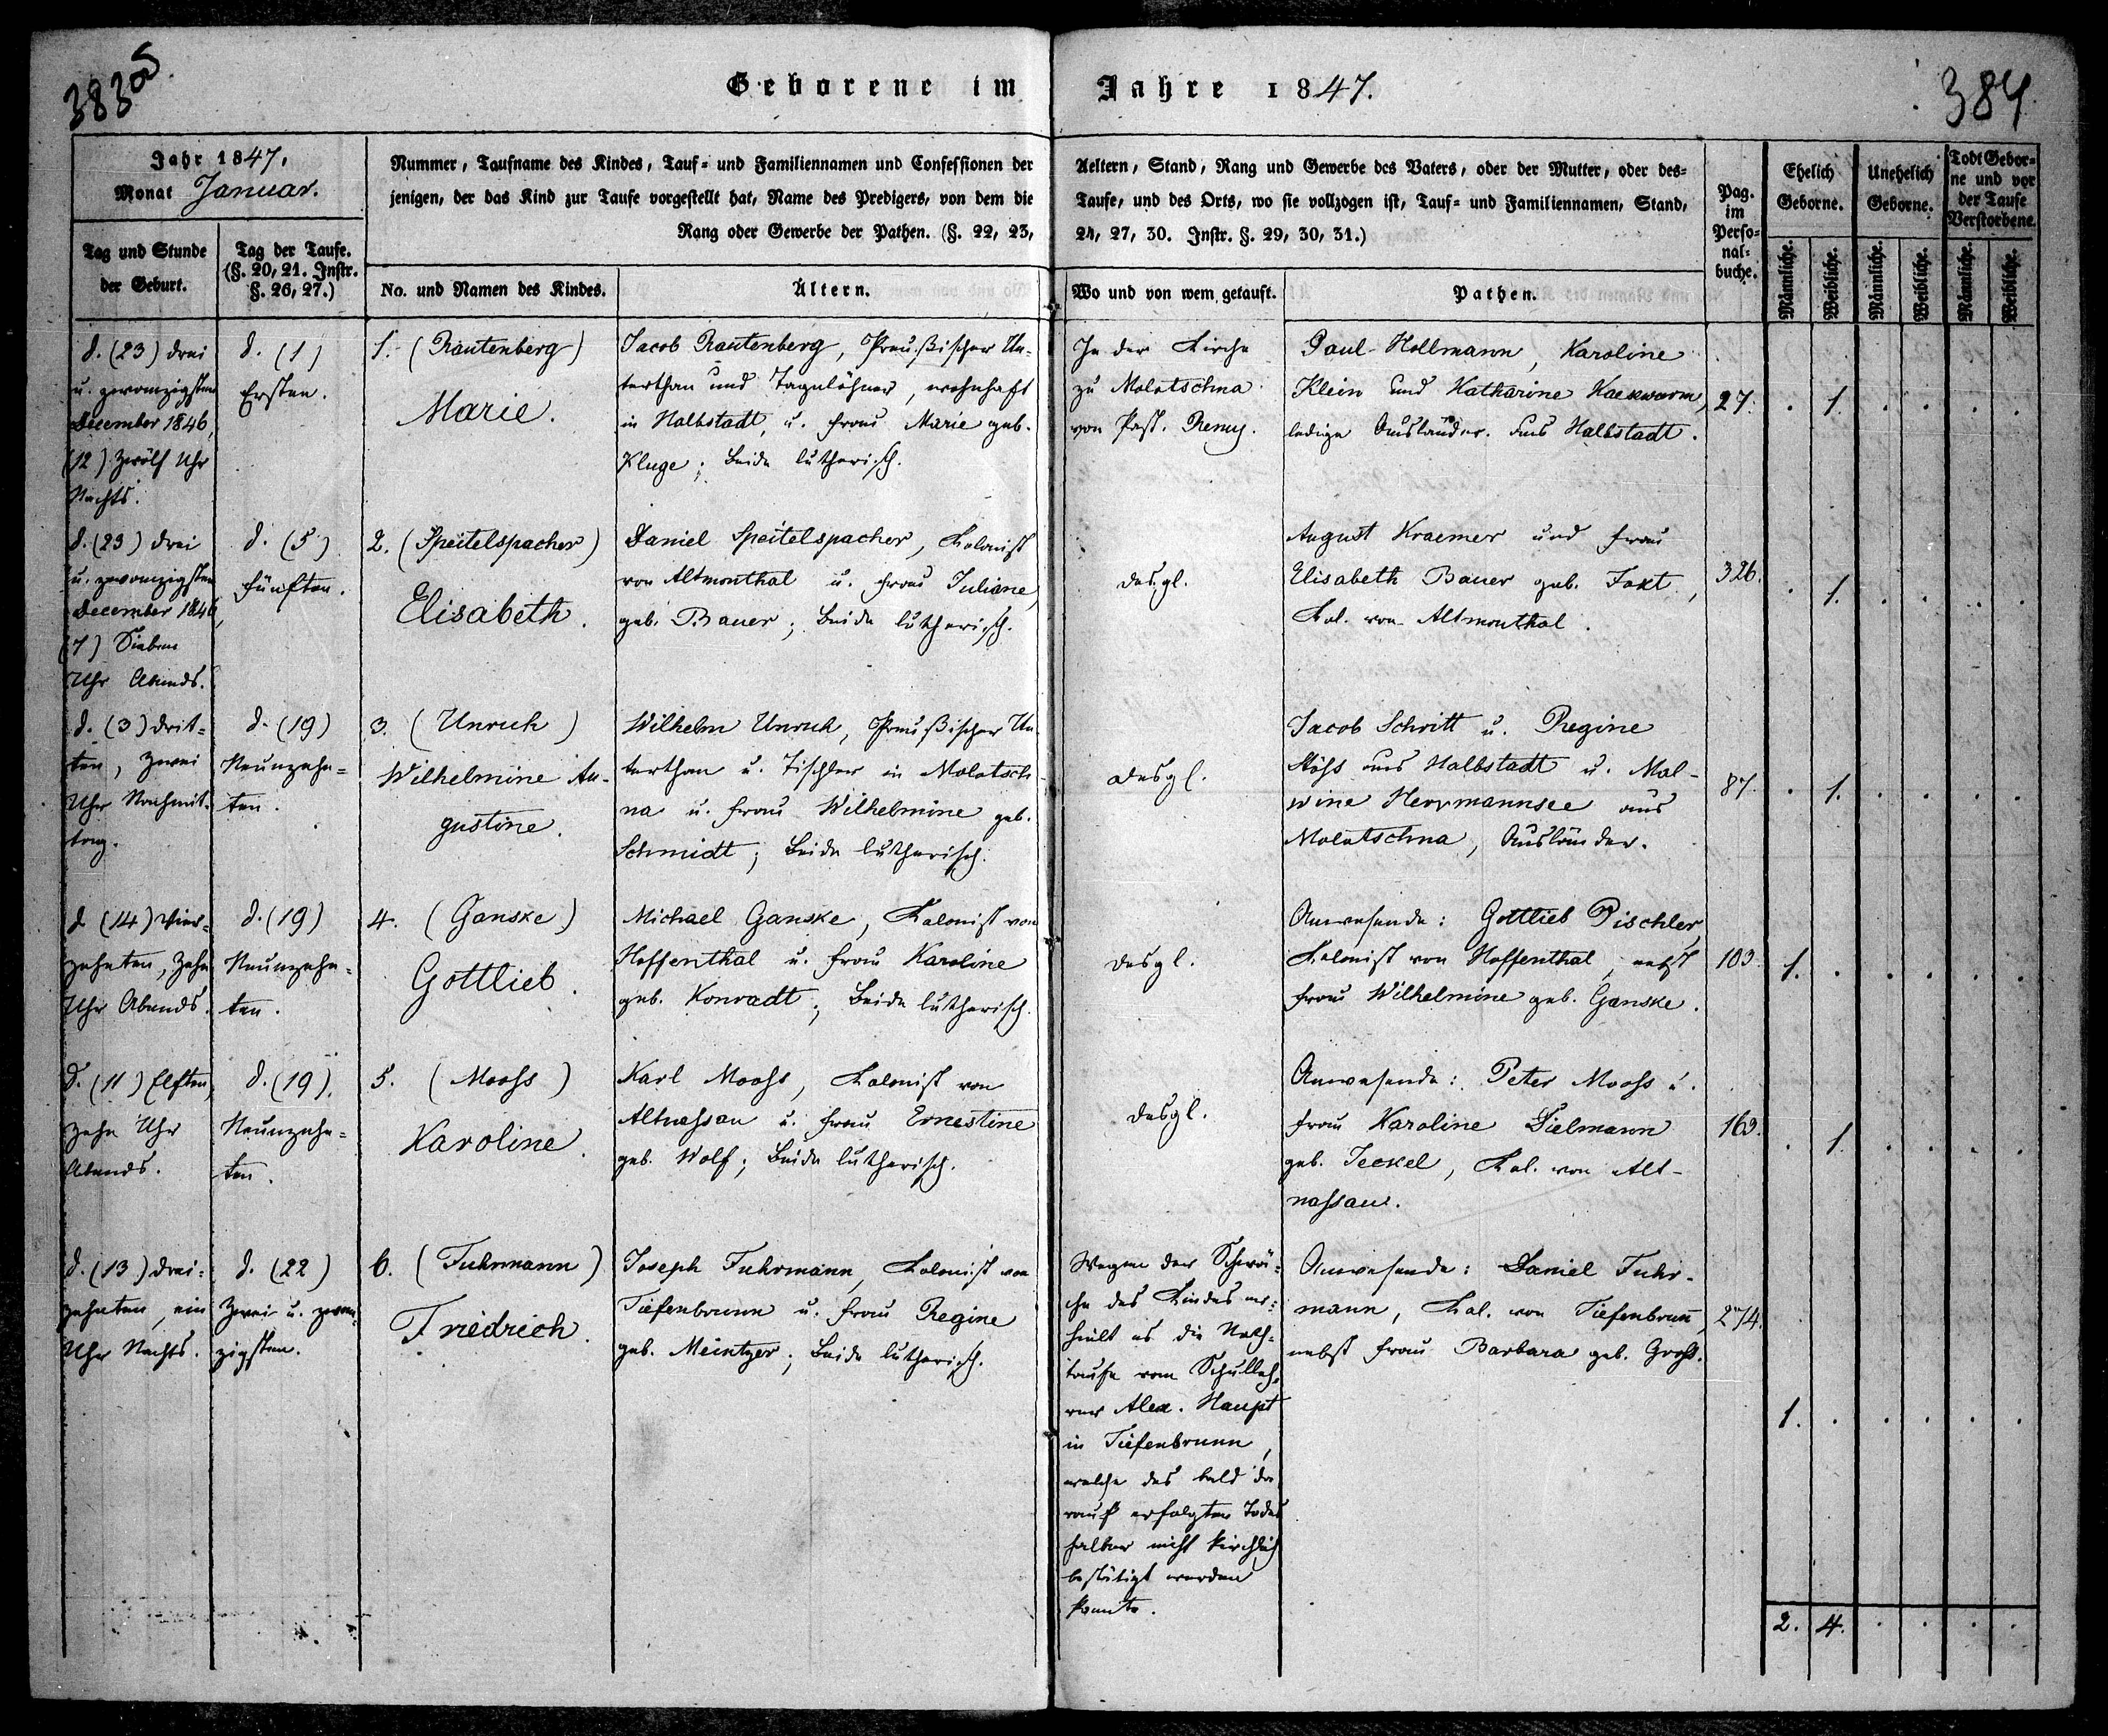 383
384.
Geborene im Jahre 1847.
Jahr 1847.
Monat Januar.
Tag und Stunde
der Geburt.
Tag der Taufe.
(§. 20, 21. Instr.
§. 26, 27.)
Nummer, Taufname des Kindes, Tauf- und Familiennamen und Confessionen der
jenigen, der das Kind zur Taufe vorgestellt hat, Name des Predigers, von dem die
Rang oder Gewerbe der Pathen. (§. 22, 23,
No. und Namen des Kindes.
Ältern.
Aeltern, Stand, Rang und Gewerbe des Vaters, oder der Mutter, oder des-
Taufe, und des Orts, wo sie vollzogen ist, Tauf- und Familiennamen, Stand,
24, 27, 30. Instr. §. 29, 30, 31.)
Wo und von wem getauft.
Pathen.
Pag.
im
Perso-
nal-
buche.
Ehelich
Geborne.
Unehelich
Geborne.
Todt Gebor-
ne und vor
der Taufe
Verstorbene.
Männliche.
Weibliche.
Männliche.
Weibliche.
Männliche.
Weibliche.
d. (23) drei
u. zwanzigsten
December 1846,
(12) zwölf Uhr
Nachts.
d. (1)
Ersten.
1. (Rautenberg)
Marie.
Jacob Rautenberg, Preußischer Un-
terthan und Tagelöhner, wohnhaft
in Halbstadt, u. Frau Marie geb.
Kluge; beide lutherisch.
In der Kirche
zu Molotschna
von Past. Remy.
Paul Hollmann, Karoline
Klein und Katharine
ledige Ausländer aus Halbstadt.
27.
. 1. . . . .
d. (23) drei
u. zwanzigsten
December 1846,
(7) Sieben
Uhr Abends.
d. (5)
Fünften.
2. (Speitelspacher)
Elisabeth.
Daniel Speitelspacher, Kolonist
von Altmonthal u. Frau Juliane,
geb. Bauer; beide lutherisch.
desgl.
August Kraemer und Frau
Elisabeth Bauer geb. Joxt,
Kol. von Altmonthal.
326.
. 1. . . . .
d. (3) drit-
ten, zwei
Uhr Nachmit-
tag.
d. (19)
Neunzehn-
ten.
3. (Unruh)
Wilhelmine Au-
gustine.
Wilhelm Unruh, Preußischer Un-
terthan u. Tischler in Molotsch-
na u. Frau Wilhelmine geb.
Schmidt; beide lutherisch.
desgl.
Jacob Schritt u. Regine
aus Halbstadt u. Mal-
wine Herrmannsee aus
Molotschna, Ausländer.
87.
. 1. . . . .
d. (14) vier-
zehnten, zehn
Uhr Abends.
d. (19)
Neunzehn-
ten.
4. (Ganske)
Gottlieb.
Michael Ganske, Kolonist von
Hoffenthal u. Frau Karoline
geb. Konradt; beide lutherisch.
desgl.
Anwesende: Gottlieb Pischler,
Kolonist von Hoffenthal, nebst
Frau Wilhelmine geb. Ganske.
103.
1. . . . . .
d. (11) Elften,
zehn Uhr
Abends.
d. (19).
Neunzehn-
ten.
5. (Mooss)
Karoline.
Karl Mooss, Kolonist von
Altnassau u. Frau Ernestine
geb. Wolf; beide lutherisch.
desgl.
Anwesende: Peter Mooss u.
Frau Karoline Dielmann
geb. Jeckel, Kol. von Alt-
nassau.
163.
. 1. . . . .
d. (13) drei-
zehnten, ein
Uhr Nachts.
d. (22)
Zwei u. zwan-
zigsten.
6. (Fuhrmann)
Friedrich.
Joseph Fuhrmann, Kolonist von
Tiefenbrunn u. Frau Regine
geb. Meintzer; beide lutherisch.
Wegen der Schwä-
che des Kindes er-
hielt es die Noth-
taufe vom Schulleh-
rer Alex. Haupt
in Tiefenbrunn,
welche des bald da-
rauf erfolgten Todes
halber nicht kirchlich
bestätigt werden
konnte.
Anwesende: Daniel Fuhr-
mann, Kol. von Tiefenbrunn,
nebst Frau Barbara geb. Gross.
274.
1. . . . . .
2. 4. . . . .